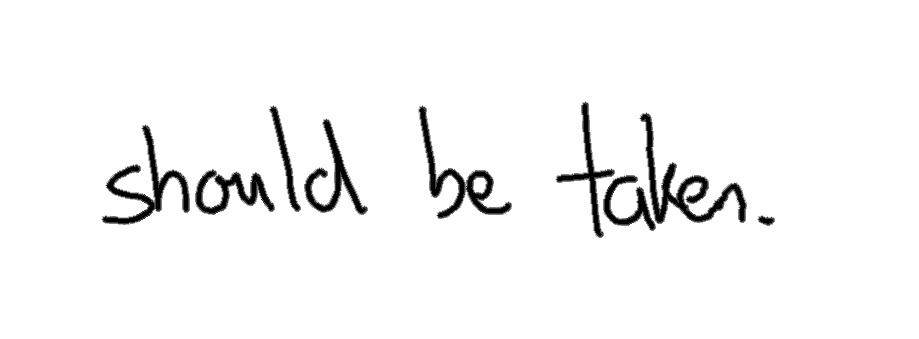 should be taken.